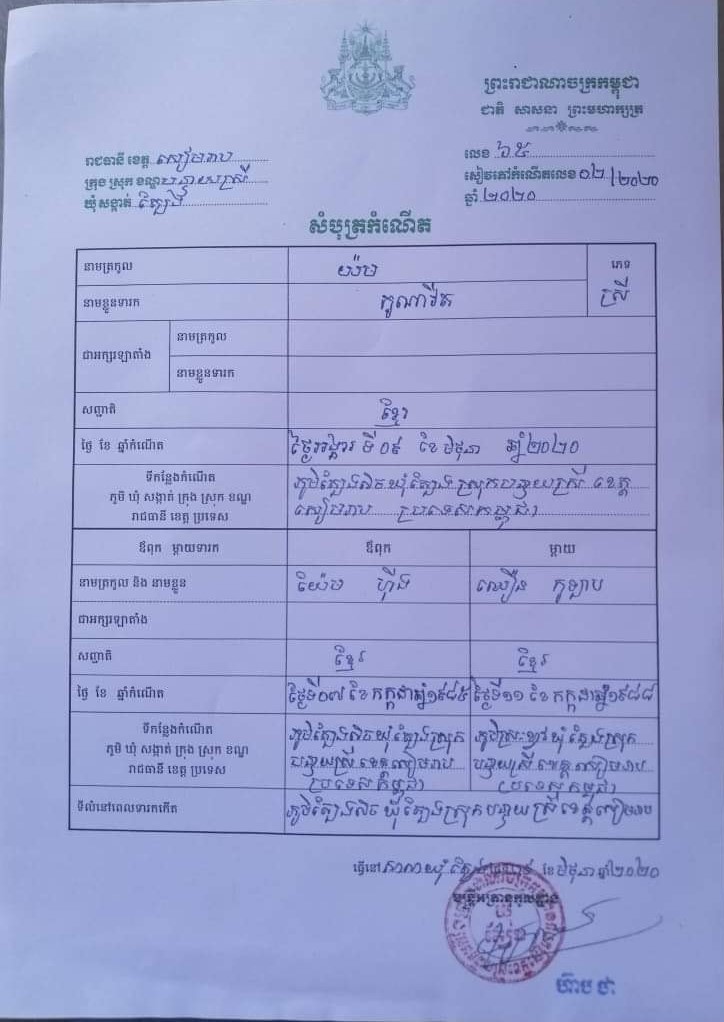 ព្រះរាជាណាចក្រកម្ពុជា
ជាតិ សាសនា ព្រះមហាក្សត្រ
រាជធានី ខេត្ត សៀមរាប
ក្រុង ស្រុក ខណ្ឌ បន្ទាយស្រី
ឃុំ សង្កាត់ ត្បែង
លេខ ៦៥
សៀវភៅកំណើតលេខ ០២/២០២០
ឆ្នាំ ២០២០
សំបុត្រកំណើត
នាមត្រកូល យ៉េម ភេទ
នាមខ្លួនទារក ស្រី
ជាអក្សរឡាតាំង នាមត្រកូល
នាមខ្លួនទារក
សញ្ជាតិ ខ្មែរ
ថ្ងៃ ខែ ឆ្នាំកំណើត ថ្ងៃអង្គារ ទី ០៩ ខែ មិថុនា ឆ្នាំ២០២០
ទីកន្លែងកំណើត
ភូមិ ឃុំ សង្កាត់ ក្រុង ស្រុក ខណ្ឌ
រាជធានី ខេត្ត ប្រទេស
ភូមិត្បែងលិច ឃុំត្បែង ស្រុកបន្ទាយស្រី ខេត្ត
សៀមរាប ប្រទេសកម្ពុជា
ឪពុក ម្តាយទារក ឪពុក ម្តាយ
នាមត្រកូល និង នាមខ្លួន យ៉េម ហ៊ីង ឈឿន កូឡាប
ជាអក្សរឡាតាំង
សញ្ជាតិ ខ្មែរ ខ្មែរ
ថ្ងៃ ខែ ឆ្នាំកំណើត ថ្ងៃទី០៧ ខែ កក្កដា ឆ្នាំ១៩៨៥ ថ្ងៃទី១១ ខែ កក្កដា ឆ្នាំ១៩៨៨
ទីកន្លែងកំណើត
ភូមិ ឃុំ សង្កាត់ ក្រុង ស្រុក ខណ្ឌ
រាជធានី ខេត្ត ប្រទេស
ភូមិត្បែងលិច ឃុំត្បែង ស្រុក
បន្ទាយស្រី ខេត្តសៀមរាប
ប្រទេសកម្ពុជា
ឃុំត្បែង ស្រុក
បន្ទាយស្រី ខេត្តសៀមរាប
ប្រទេសកម្ពុជា
ទីលំនៅពេលទារកកើត ភូមិត្បែងលិច ឃុំត្បែង ស្រុកបន្ទាយស្រី ខេត្តសៀមរាប
ធ្វើនៅ សាលាឃុំ ត្បែង ខែ មិថុនា ឆ្នាំ ២០២០
មន្ត្រីអត្រានុកូលដ្ឋាន
ហ៊ាប ជា